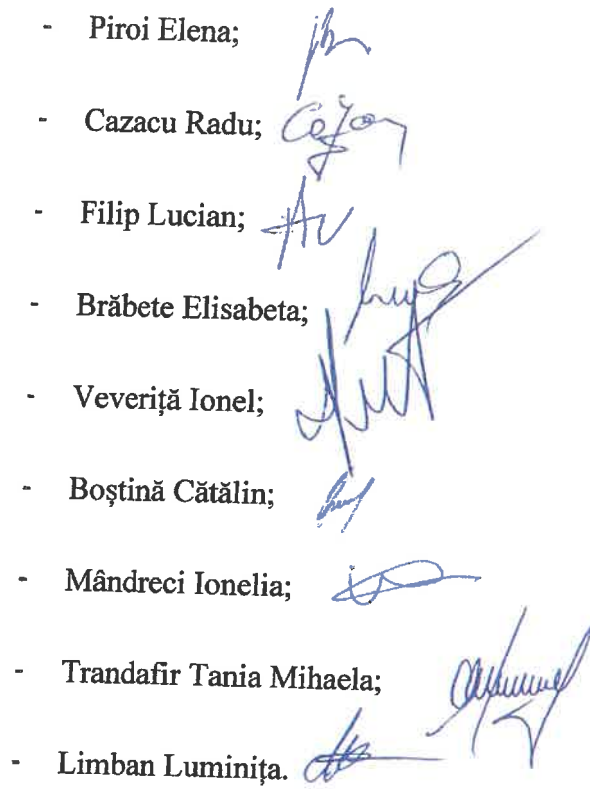 - Piroi Elena;
- Cazacu Radu;
- Filip Lucian;
- Brăbete Elisabeta;
- Veveriță Ionel;
- Boștină Cătălin;
- Mândreci Ionelia;
- Trandafir Tania Mihaela;
- Limban Luminița.